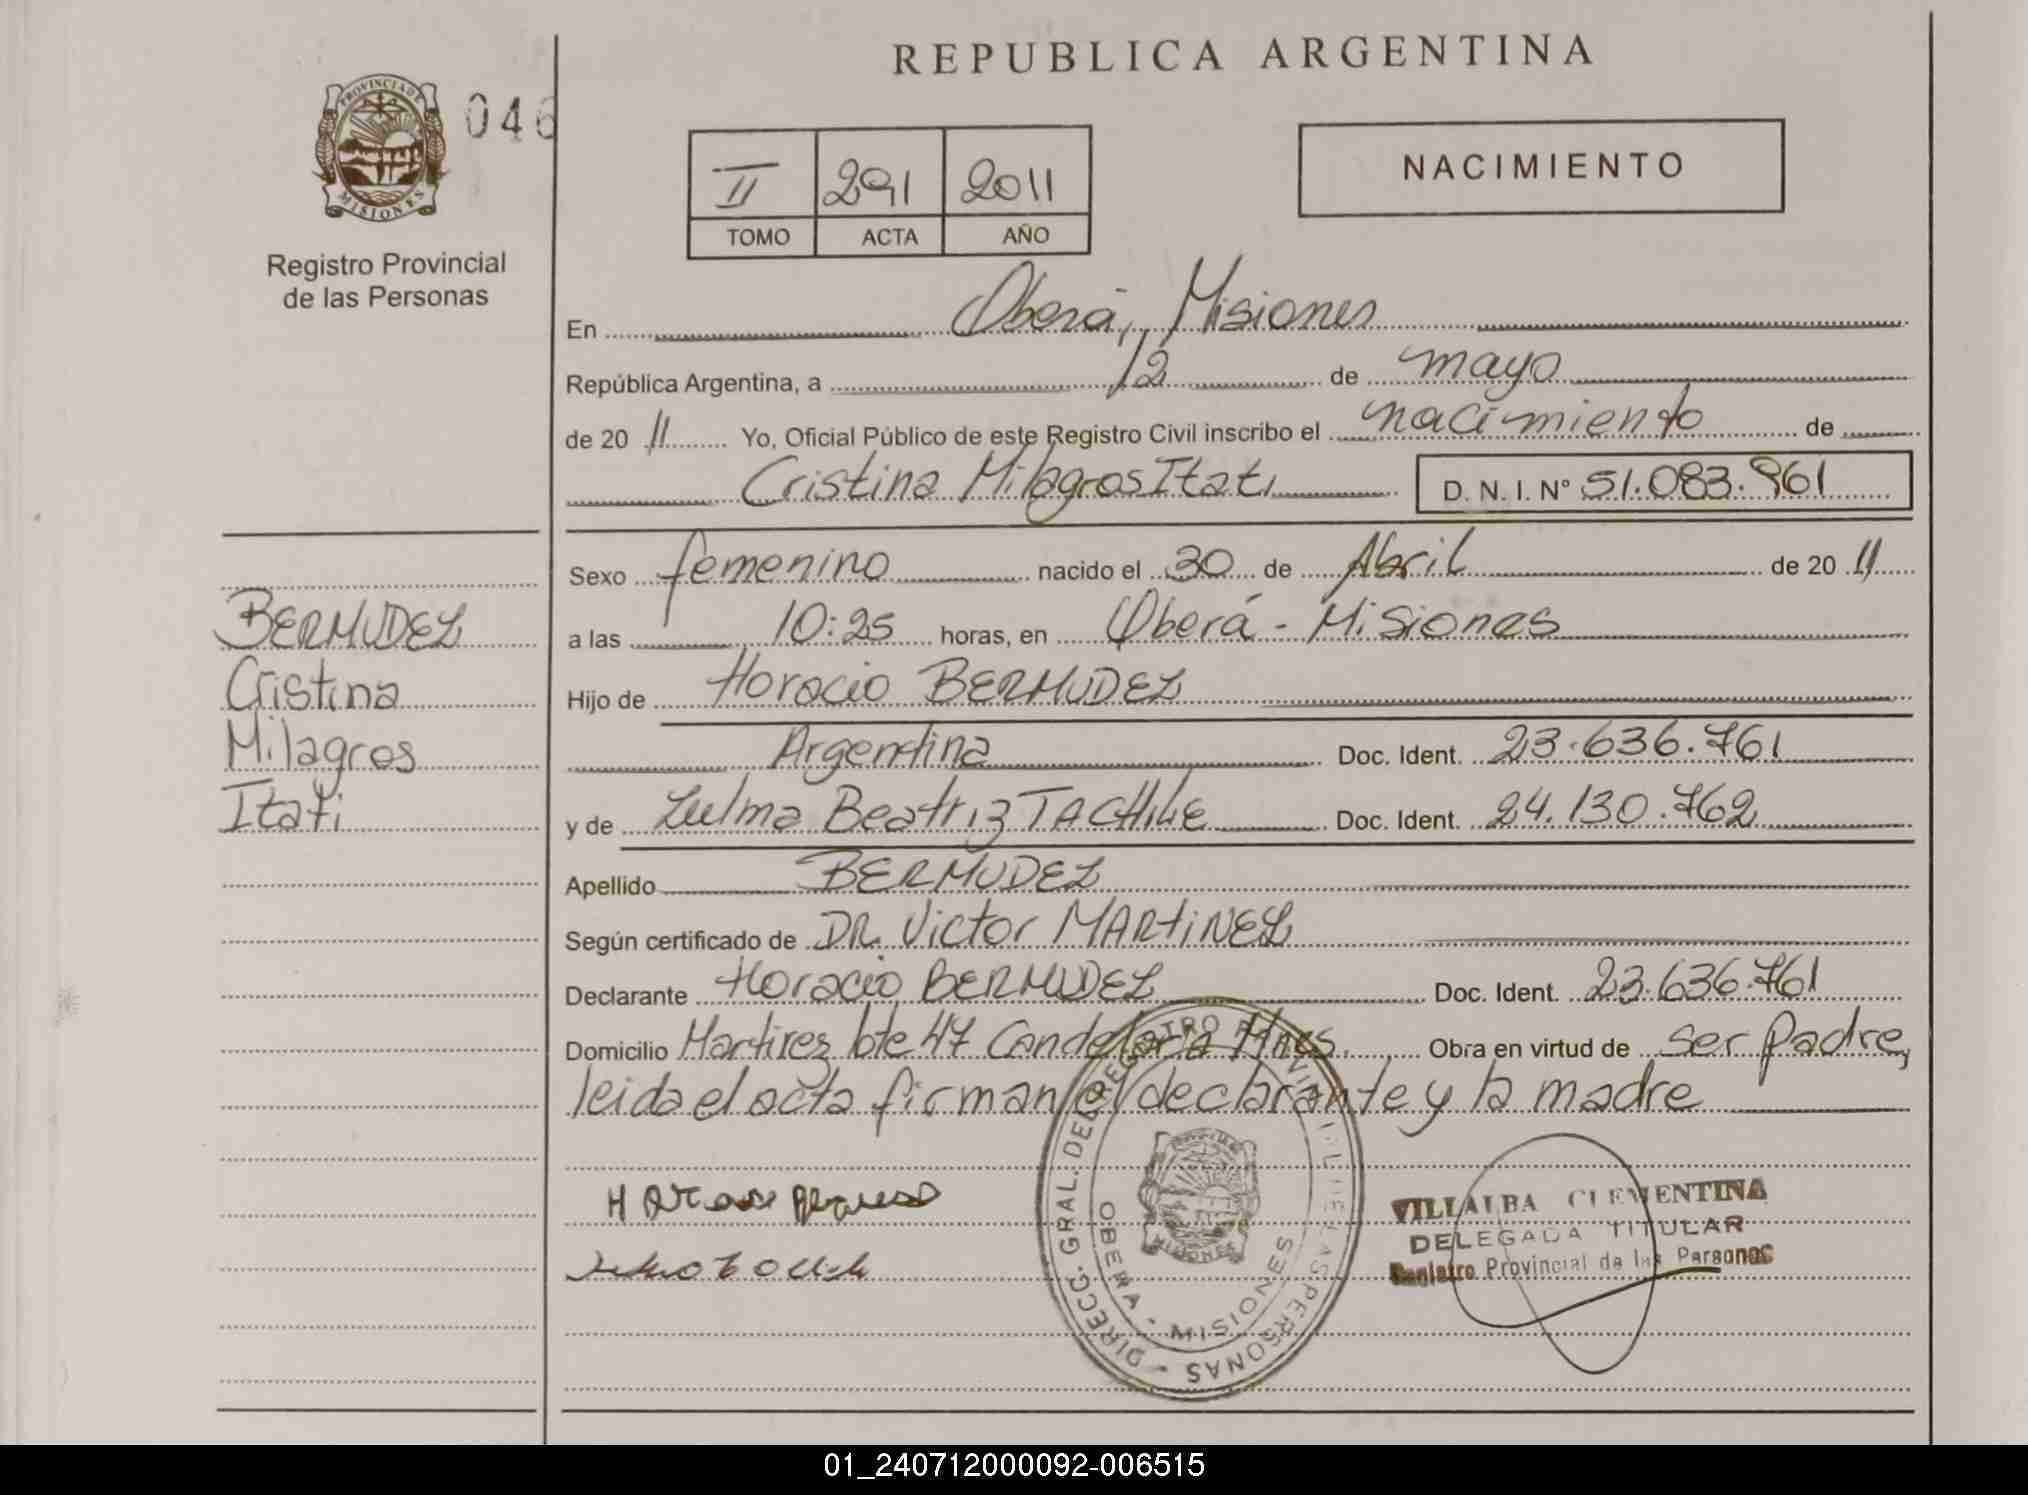 REPUBLICA ARGENTINA
PROVINCIA DE
MISIONES
046
Registro Provincial
de las Personas
II 291 2011
TOMO ACTA AÑO
NACIMIENTO
En Oberá, Misiones
República Argentina, a 12 de mayo
de 20 11 Yo, Oficial Público de este Registro Civil inscribo el nacimiento de
Cristina Milagros Itati D. N. I. Nº 51.083.961
Sexo femenino nacido el 30 de Abril de 20 11
a las 10:25 horas, en Oberá - Misiones
Hijo de Horacio BERMUDEZ
Argentina Doc. Ident. 23.636.761
y de Zulma Beatriz Doc. Ident. 24.130.762
Apellido BERMUDEZ
Según certificado de DR. Victor MARTiNEZ
Declarante Horacio BERMUDEZ Doc. Ident. 23.636.761
Domicilio Martirez bte 47 Candelaria Mnes. Obra en virtud de ser padre,
leida el acta firman el declarante y la madre
BERMUDEZ
Cristina
Milagros
Itati
DIRECC. GRAL. DEL REGISTRO PROVINCIAL DE LAS PERSONAS
OBERA - MISIONES
MISIONES
VILLALBA CLEMENTINA
DELEGADA TITULAR
Registro Provincial de las Personas
01_240712000092-006515